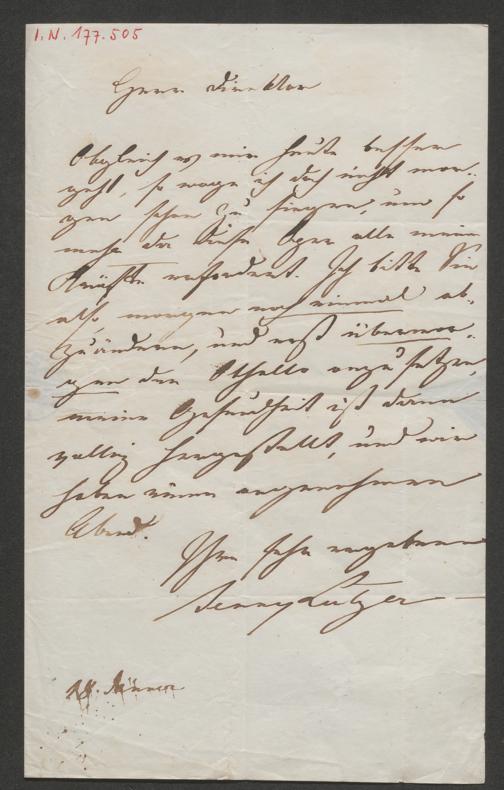 I. N. 177.505
Herrn Direktor
Obgleich es mir heute besser
geht, so wage ich doch nicht mor-
gen schon zu singen, um so
mehr da diese Oper alle meine
Kräfte erfordert. Ich bitte Sie
also, morgen noch einmal ab-
zuändern, und erst übermor-
gen den Othello anzusetzen,
meine Gesundheit ist dann
vollig hergestellt, und wir
haben einen angenehmen
Abend.
Ihre sehr ergebene
Jenny Lutzer
Jänner